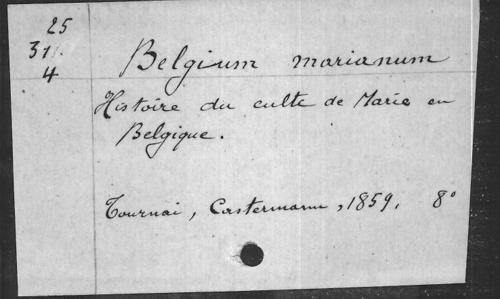 25
31
4
Belgium marianum
Histoire du culte de Marie en
Belgique.
Tournai, Castermann, 1859, 8°